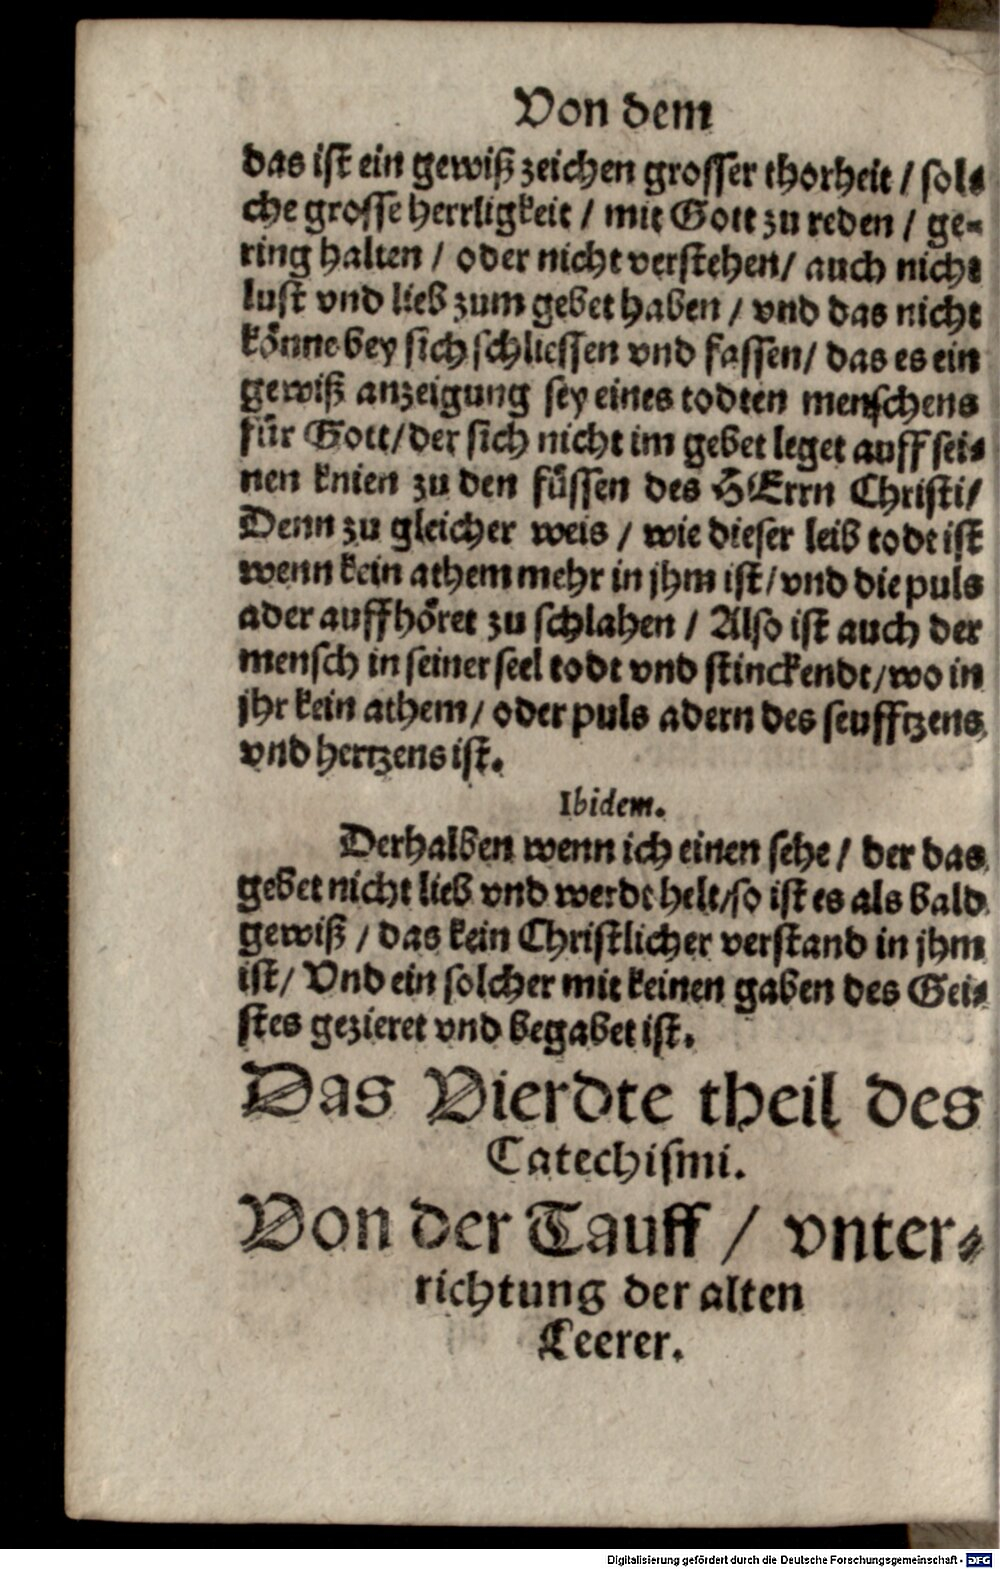 Von dem
das ist ein gewiß zeichen grosser thorheit / sol-
che grosse herrligkeit / mit Gott zu reden / ge-
ring halten / oder nicht verstehen / auch nicht
lust vnd lieb zum gebet haben / vnd das nicht
könne bey sich schliessen vnd fassen / das es ein
gewiß anzeigung sey eines todten menschens
für Gott / der sich nicht im gebet leget auff sei-
nen knien zu den füssen des HErrn Christi /
Denn zu gleicher weis / wie dieser leib todt ist
wenn kein athem mehr in jhm ist / vnd die puls
ader auffhöret zu schlahen / Also ist auch der
mensch in seiner seel todt vnd stinckendt / wo in
jhr kein athem / oder puls adern des seufftzens
vnd hertzens ist.
Ibidem.
Derhalben wenn ich einen sehe / der das
gebet nicht lieb vnd werdt helt / so ist es als bald
gewiß / das kein Christlicher verstand in jhm
ist / Vnd ein solcher mit keinen gaben des Gei-
stes gezieret vnd begabet ist.
Das Vierdte theil des
Catechismi.
Von der Tauff / vnter-
richtung der alten
Leerer.
Digitalisierung gefördert durch die Deutsche Forschungsgemeinschaft - DFG